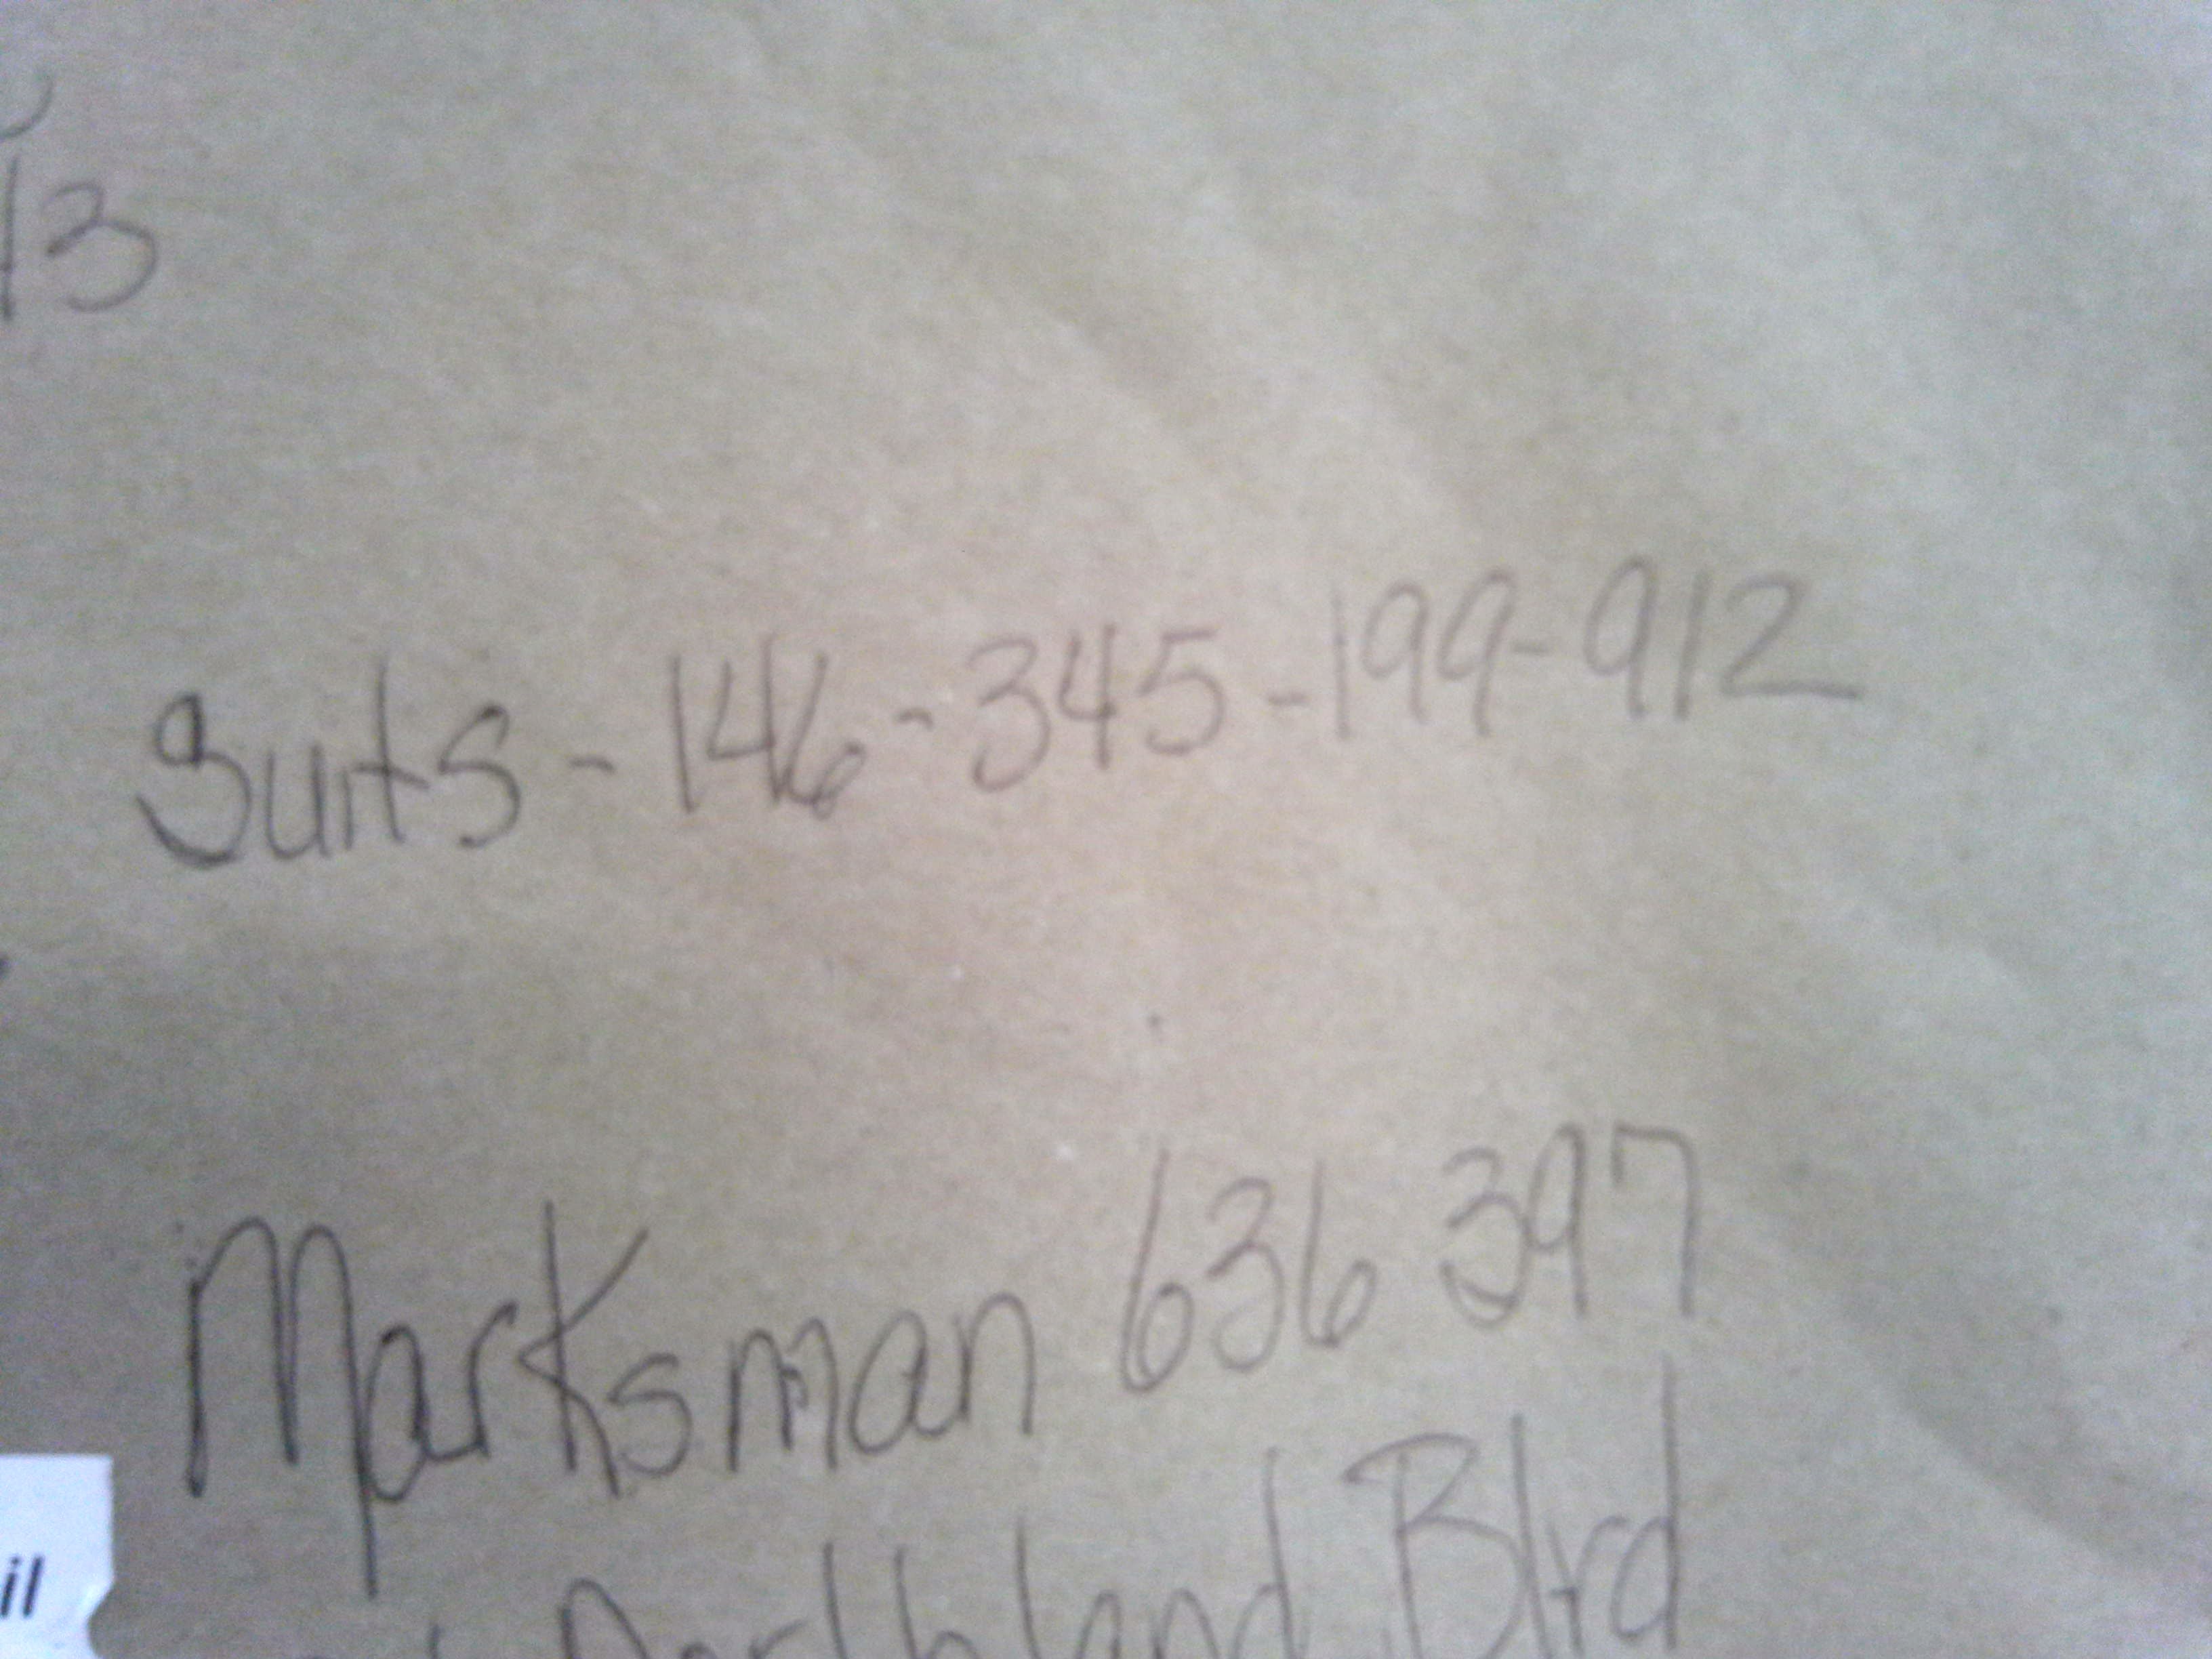 13
Suits - 146 - 345 - 199 - 912
Marksman 636 397
il
Northland Blvd